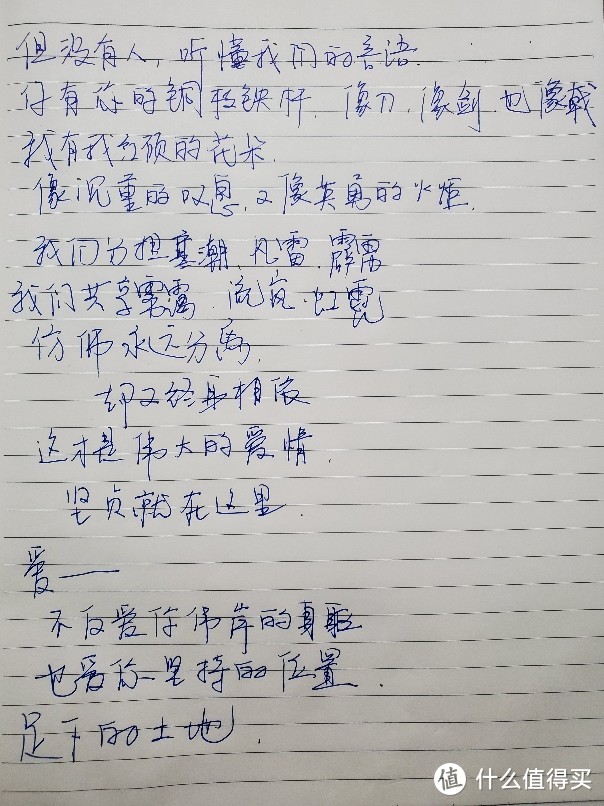 但没有人，听懂我们的言语.
仔有你的铜枝铁杆. 像刀、像剑 也像戟
我有我红硕的花朵.
像沉重的叹息，又像英勇的火炬.
我们分担寒潮、风雷、霹雳
我们共享雾霭、流岚、虹霓
仿佛永远分离.
却又终身相依
这才是伟大的爱情.
坚贞就在这里.
爱——
不仅爱你伟岸的身躯
也爱你坚持的位置.
足下的土地.
值 什么值得买